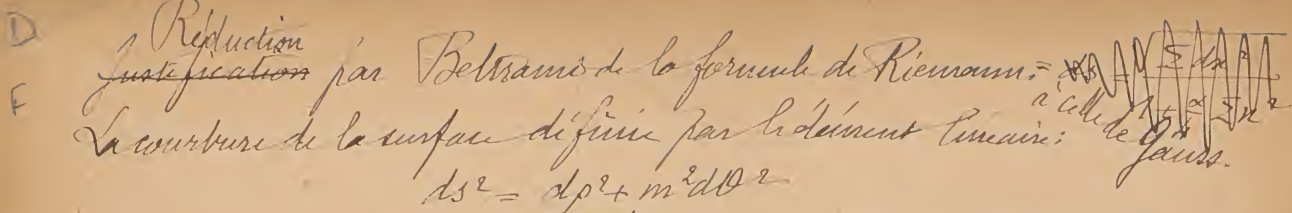 D
Réduction
Justification par Beltrami de la formule de Riemann =
à celle de Gauss.
F
La courbure de la surface définie par l'élément linéaire :
ds² = dρ² + m²dθ²